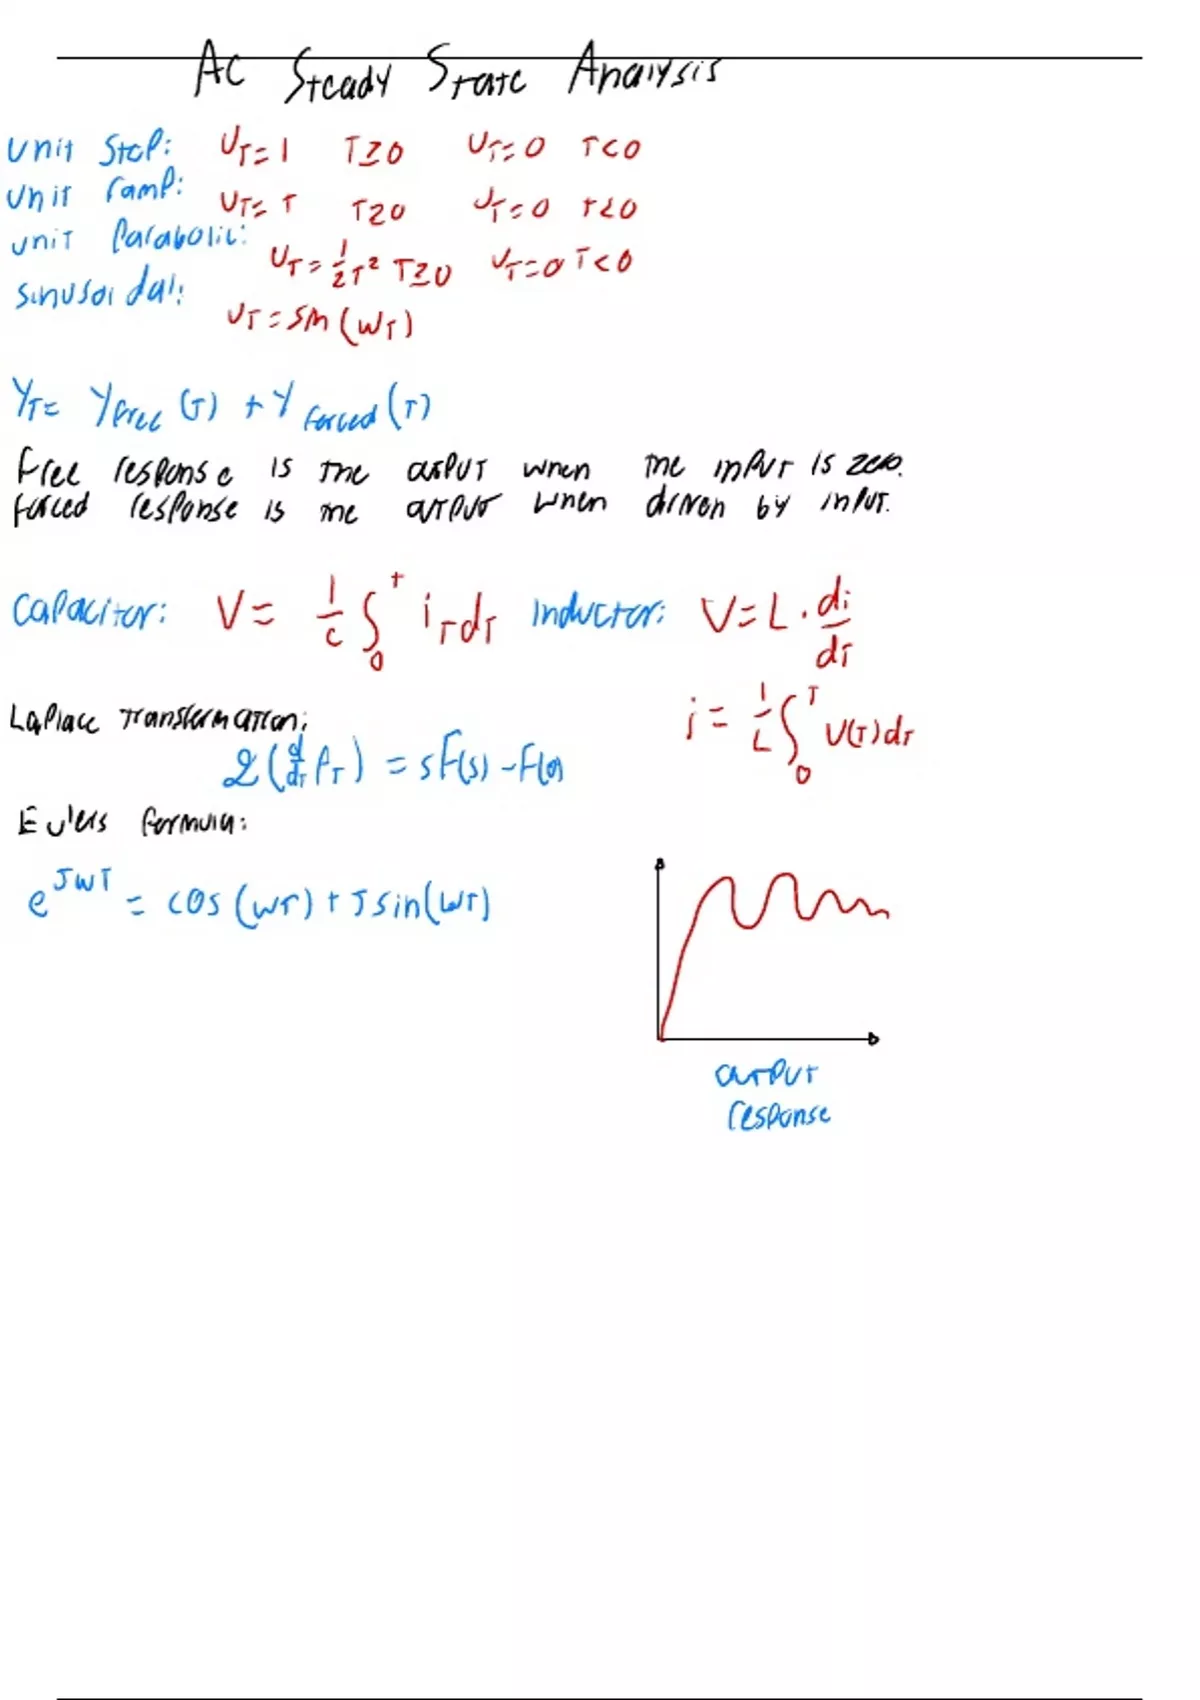 AC Steady State Analysis
Unit Step: UT=1 T≥0 UT=0 T<0
Unit ramp: UT=T T≥0 UT=0 T<0
Unit Parabolic: UT=1/2T² T≥0 UT=0 T<0
Sinusoidal: UT=sin(WT)
YT= Yfree(T) + Yforced(T)
Free response is the output when the input is zero.
forced response is the output when driven by input.
Capacitor: V= 1/C ∫₀ᵗ iT dT Inductor: V=L·di/dT
i= 1/L ∫₀ᵀ V(T)dT
Laplace Transformation:
ℒ(d/dT fT) = sF(s) - F(0)
Eulers formula:
e^JWT = cos(WT)+Jsin(WT)
output
response